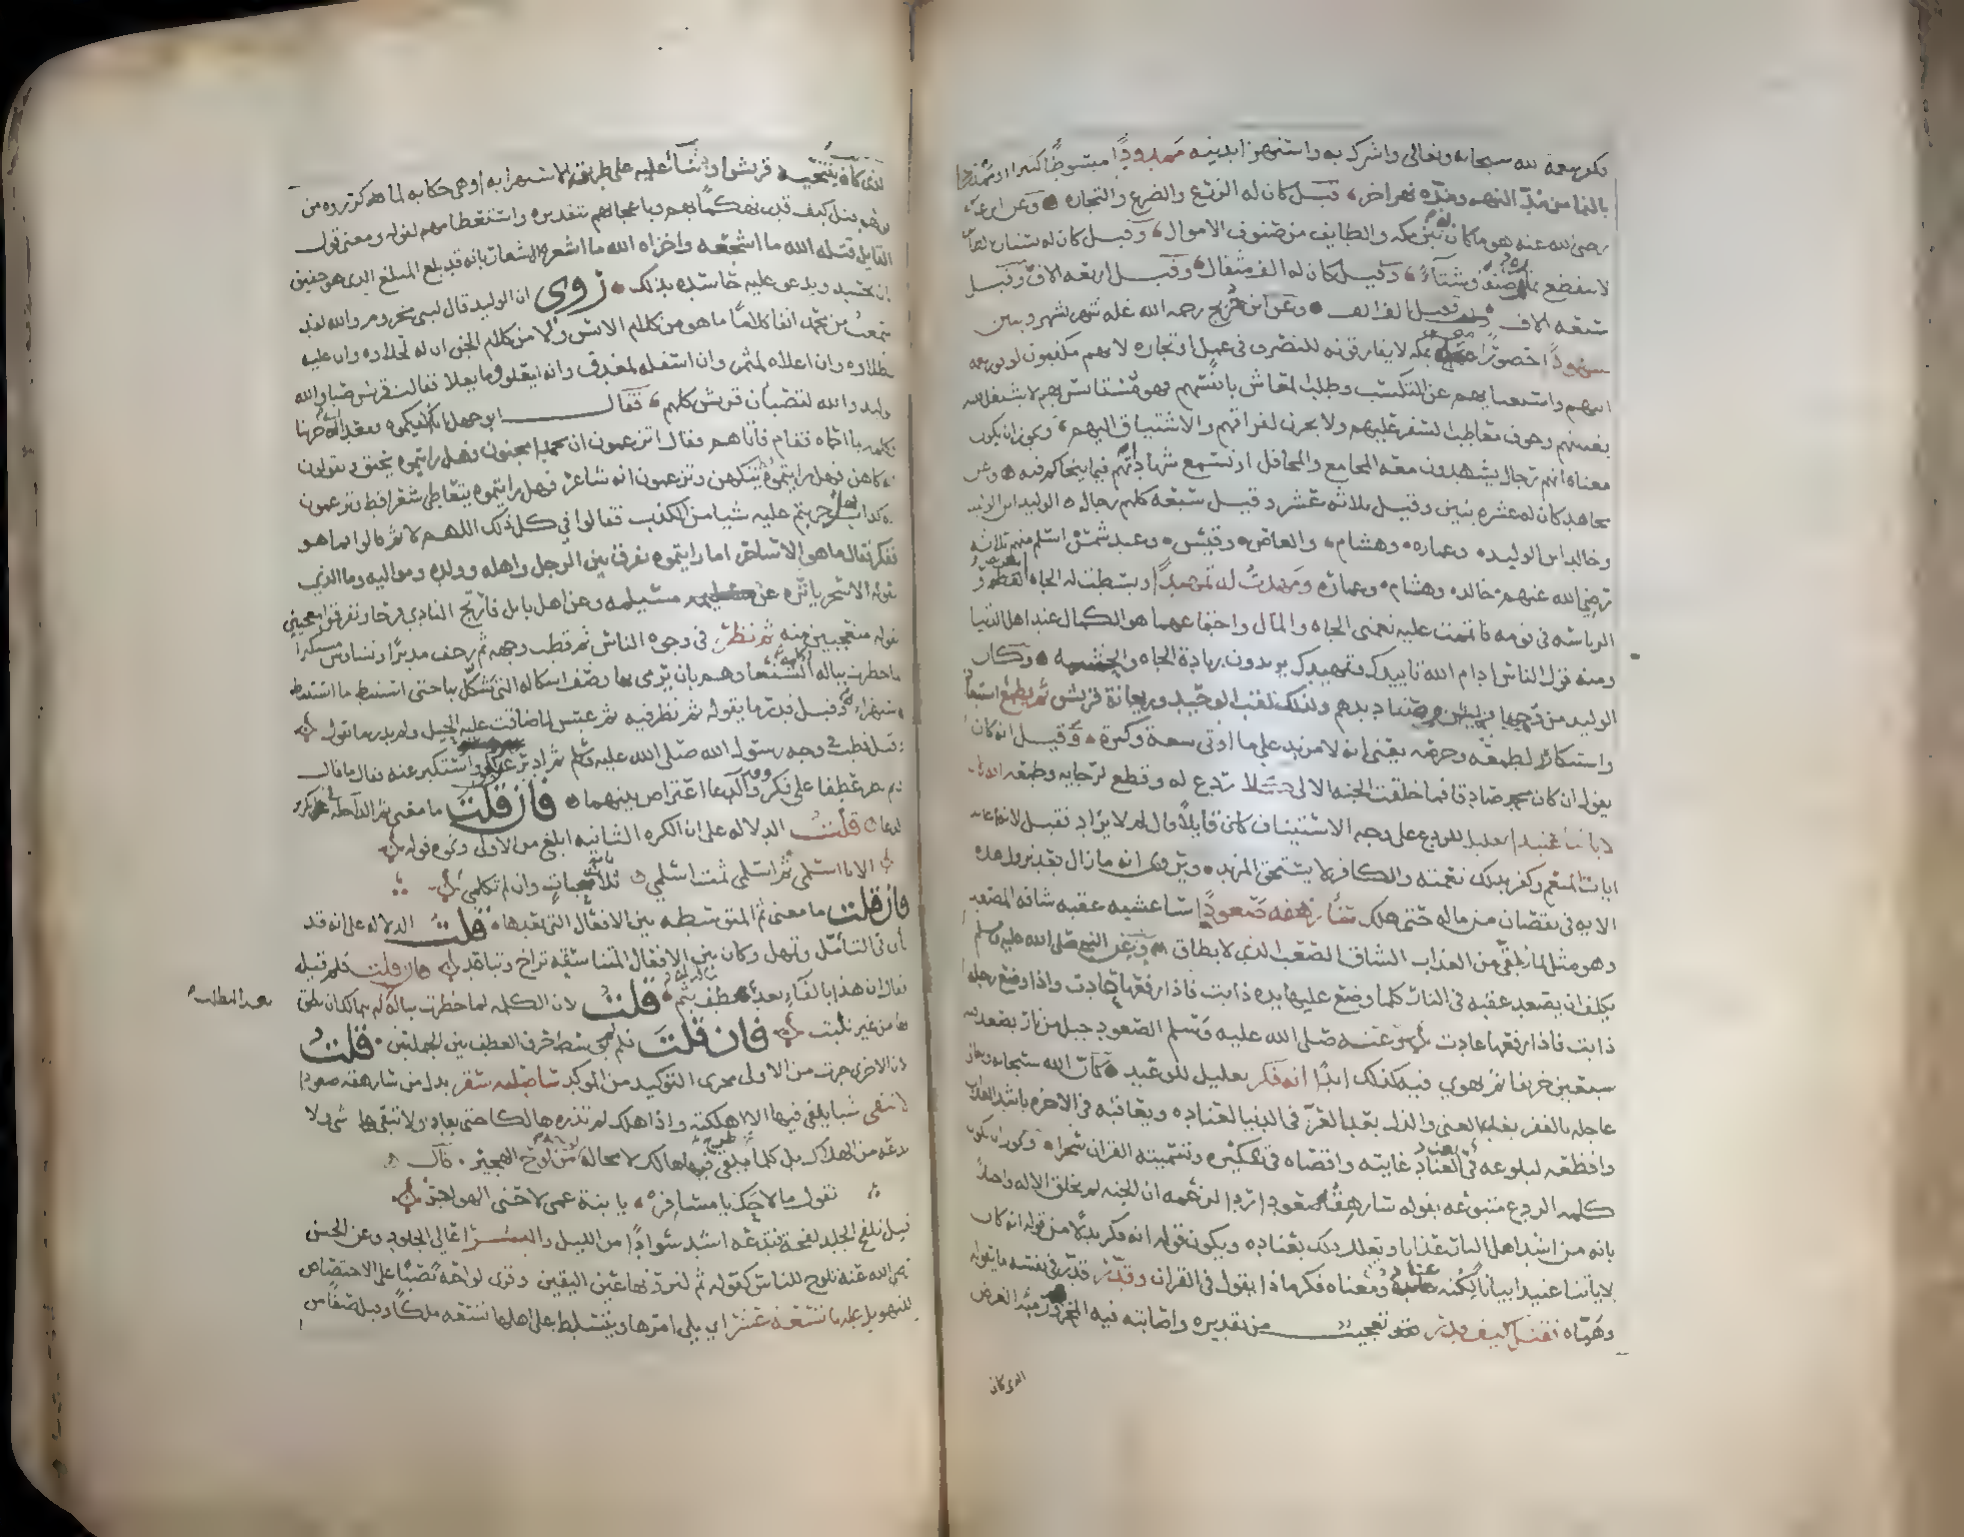 بالنما من مد النهر ومده نهر اخر، قيل كان له الزرع والضرع والتجارة وعن ابن عباس
رضى الله عنه هو ما كان له بين مكه والطايف من صنوف الاموال، وقيل كان له بستان
لا ينقطع ثماره صيفا وشتاءً، وقيل كان له الف مثقال، وقيل اربعه الاف وقيل
تسعه الاف وقيل الف الف وعن ابن جريج رحمه الله غله شهر بشهر وبنين
شهوداً حضورًا معه بمكه لا يفارقونه للتصرف فى عمل او تجاره لانهم مكفيون لوفور نعمه
ابيهم واستغنايهم عن التكسب وطلب المعاش بانفسهم فهو مستانس بهم لا يشتغل قلبه
بغيبتهم وخوف معاطب السفر عليهم ولا يحزن لفراقهم والاشتياق اليهم، ويجوز ان يكون
معناه انهم رجال يشهدون معه المجامع والمحافل او تسمع شهاداتهم فيما يتحاكم فيه وعن
مجاهد كان له عشره بنين وقيل ثلاثه عشر وقيل سبعه كلهم رجال الوليد ابن الوليد
وخالد ابن الوليد وعماره وهشام والعاص وقيس وعبد شمس اسلم منهم ثلاثه
رضى الله عنهم خالد وهشام وعماره ومهدت له تمهيداً وبسطت له الجاه العريض و
الرياسه فى قومه فاتممت عليه نعمتى الجاه والمال واجتماعهما هو الكمال عند اهل الدنيا
ومنه قول الناس ادام الله تاييدك وتمهيدك يريدون زيادة الجاه والحشمه وكان
الوليد من وجهاء قريش وصناديدهم ولذلك لقب الوحيد وريحانة قريش ثم يطمع استبعاد
واستنكار لطمعه وحرصه يعنى انه لا مزيد على ما اوتى سعة وكثرة، وقيل انه كان
يقول ان كان محمد صادقا فما خلقت الجنه الا لى كلا ردع له وقطع لرجايه وطمعه انه كان
لاياتنا عنيدا تعليل للردع على وجه الاستيناف كان قايلاً قال لم لا يزاد فقيل لانه عاند
ايات المنعم وكفر بذلك نعمته والكافر لا يستحق المزيد ويروى انه ما زال بعد نزول هذه
الايه فى نقصان من ماله حتى هلك سأرهقه صعوداً ساغشيه عقبه شاقه المصعد
وهو مثل لما يلقى من العذاب الشاق الصعب الذى لا يطاق وعن النبى صلى الله عليه وسلم
يكلف ان يصعد عقبه فى النار كلما وضع عليها يده ذابت فاذا رفعها عادت واذا وضع رجله
ذابت فاذا رفعها عادت وعنه صلى الله عليه وسلم الصعود جبل من نار يصعد فيه
سبعين خريفا ثم يهوى فيه كذلك ابدًا انه فكر تعليل للوعيد كان الله سبحانه وتعالى
عاجله بالفقر بعد الغنى والذل بعد العز فى الدنيا لعناده ويعاقبه فى الاخره باشد العذاب
وافظعه لبلوغه فى العناد غايته واقصاه فى تفكيره وتسميته القران سحرا ويجوز ان يكون
كلمه الردع متبوعه بقوله سارهقه صعودا ردا لزعمه ان الجنه لم تخلق الا له واحدا
بانه من اشد اهل النار عذابا ويعلل ذلك بعناده ويكون قوله انه فكر بدلا من قوله انه كان
لاياتنا عنيدا بيانا لكنه عناده ومعناه فكر ماذا يقول فى القران وقدر قدر فى نفسه ما يقوله
وهياه فقتل كيف قدر تعجيب من تقديره واصابته فيه المحز ورميه الغرض
الذى كان
الذى كان ينتحيه قريش او ثناء عليه على طريقه الاستهزا به او هى حكايه لما كرروه من
قولهم قتل كيف قدر تهكما بهم وباعجابهم بتقديره واستعظامهم لقوله ومعنى قول
القايل قتله الله ما اشجعه واخزاه الله ما اشعره الاشعار بانه قد بلغ المبلغ الذى هو حقيق
بان يحسد ويدعى عليه حاسده بذلك روى ان الوليد قال لبنى مخزوم والله لقد
سمعت من محمد انفا كلامًا ما هو من كلام الانس ولا من كلام الجن ان له لحلاوه وان عليه
لطلاوه وان اعلاه لمثمر وان اسفله لمغدق وانه يعلو وما يعلا فقالت قريش صبا والله
وليد والله لتصبأن قريش كلهم، فقال ابو جهل انا اكفيكموه فقعد اليه حزينا
وكلمه بما احماه فقام فاتاهم فقال تزعمون ان محمدا مجنون فهل رايتموه يخنق وتقولون
انه كاهن فهل رايتموه يتكهن وتزعمون انه شاعر فهل رايتموه يتعاطى شعرا قط وتزعمون
انه كذاب فهل جربتم عليه شيا من الكذب فقالوا فى كل ذلك اللهم لا ثم قالوا فما هو
ففكر فقال ما هو الا ساحر اما رايتموه يفرق بين الرجل واهله وولده ومواليه وما الذى
يقوله الا سحر ياثره عن مسيلمه وعن اهل بابل فارتج النادى فرحا وتفرقوا معجبين
بقوله متعجبين منه ثم نظر فى وجوه الناس ثم قطب وجهه ثم زحف مدبرًا وتشاوس مستكبرا
لما خطرت بباله الكلمه الشنعا وهم بان يرمى بها وصف اشكاله التى تشكل بها حتى استنبط ما استنبط
استهزاء وقيل قدر ما يقوله ثم نظر فيه ثم عبس لما ضاقت عليه الحيل ولم يدر ما يقول
وقيل قطب فى وجه رسول الله صلى الله عليه وسلم ثم ادبر عن الحق واستكبر عنه فقال ما قال
ثم نظر عطفا على فكر وقدر والدعا اعتراض بينهما فان قلت ما معنى ثم الداخله فى تكرير
الدعا قلت الدلاله على ان الكره الثانيه ابلغ من الاولى ونحوه قوله
الا يا اسلمى ثم اسلمى ثمت اسلمى ثلاث تحيات وان لم تكلمى
فان قلت ما معنى ثم المتوسطه بين الافعال التى بعدها قلت الدلاله على انه قد
تأنى فى التأمل وتمهل وكان بين الافعال المتناسقه تراخ وتباعد فان قلت فلم قيل
فقال ان هذا بالفاء بعد عطف ما قبله بثم قلت لان الكلمه لما خطرت بباله لم يتمالك ان نطق
بعد التطلب
بها من غير تلبث فان قلت فلم لم يوسط حرف العطف بين الجملتين قلت
لان الاخرى جرت من الاولى مجرى التوكيد من الموكد ساصليه سقر بدل من سارهقه صعودا
لا تبقى شيا يلقى فيها الا اهلكته واذا هلك لم تذره هالكا حتى يعاد ولا تبقى شى ولا
تدعه من الهلاك بل كلما يطرح فيها هالك لا محالة من لوح الهجير قال
تقول ما لاحك يا مسافر يا بنة عمى لاحنى الهواجر
قيل تلفح الجلد لفحة فتدعه اشد سوادًا من الليل والبشر اعالى الجلود وعن الحسن
رضى الله عنه تلوح للناس كقوله ثم لترونها عين اليقين وقرى لواحة نصبًا على الاختصاص
للتهويل عليها تسعه عشر اى يلى امرها ويتسلط على اهلها تسعه عشر ملكًا وقيل صنفا من